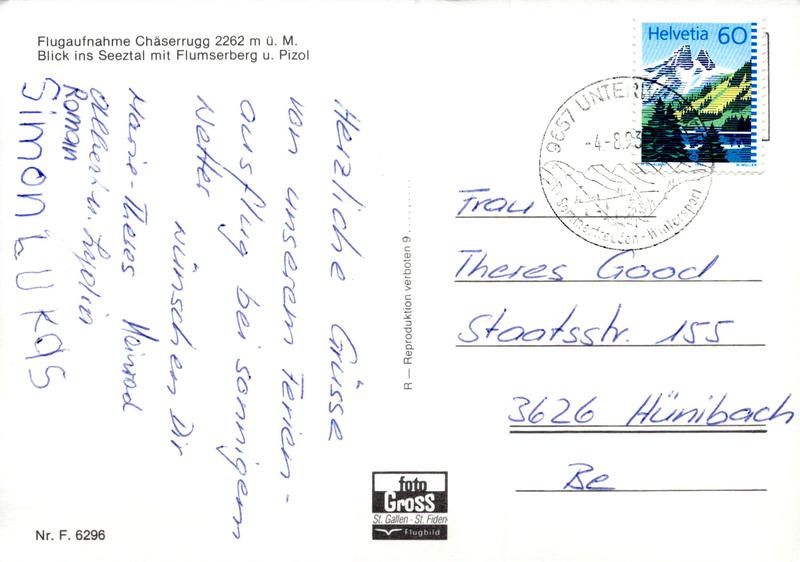 Flugaufnahme Chäserrugg 2262 m ü. M.
Blick ins Seeztal mit Flumserberg u. Pizol
Herzliche Grüsse
von unserem Ferien-
ausflug bei sonnigem
Wetter
wünschen Dir
Marie-Theres Meinrad
Albert u.
Roman
Simon Lukas
Nr. F. 6296
R — Reproduktion verboten 9
foto
Gross
St. Gallen - St. Fiden
Flugbild
Helvetia 60
9657 UNTER
-4.-8.93
Sommerfreuden - Wintersport
Frau
Theres Good
Staatsstr. 155
3626 Hünibach
Be